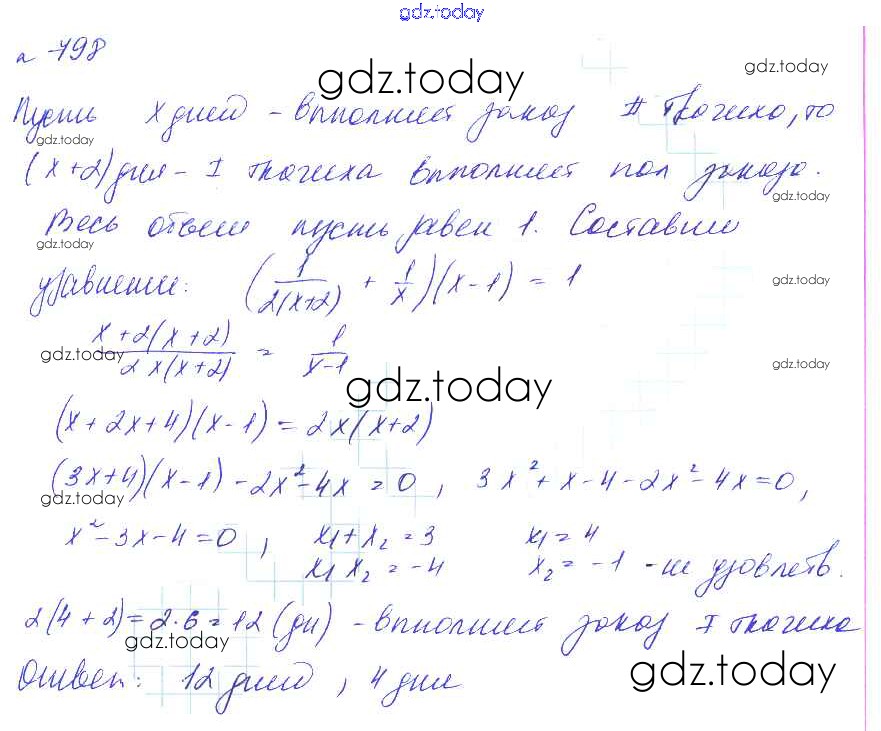 gdz.today
n 798
gdz.today
gdz.today
Пусть x дней - выполняет заказ II ткачиха, то
gdz.today
(x+2) дня - I ткачиха выполняет пол заказа.
gdz.today
Весь объем пусть равен 1. Составим
gdz.today
уравнение: (1/(2(x+2)) + 1/x)(x-1) = 1
gdz.today
(x+2(x+2))/(2x(x+2)) = 1/(x-1)
gdz.today
gdz.today
gdz.today
(x+2x+4)(x-1) = 2x(x+2)
(3x+4)(x-1) - 2x²-4x = 0, 3x²+x-4-2x²-4x=0,
gdz.today
x²-3x-4=0, x₁+x₂=3 x₁=4
x₁x₂=-4 x₂=-1 - не удовлетв.
2(4+2)=2·6=12 (дн) - выполняет заказ I ткачиха
gdz.today
Ответ: 12 дней, 4 дня
gdz.today